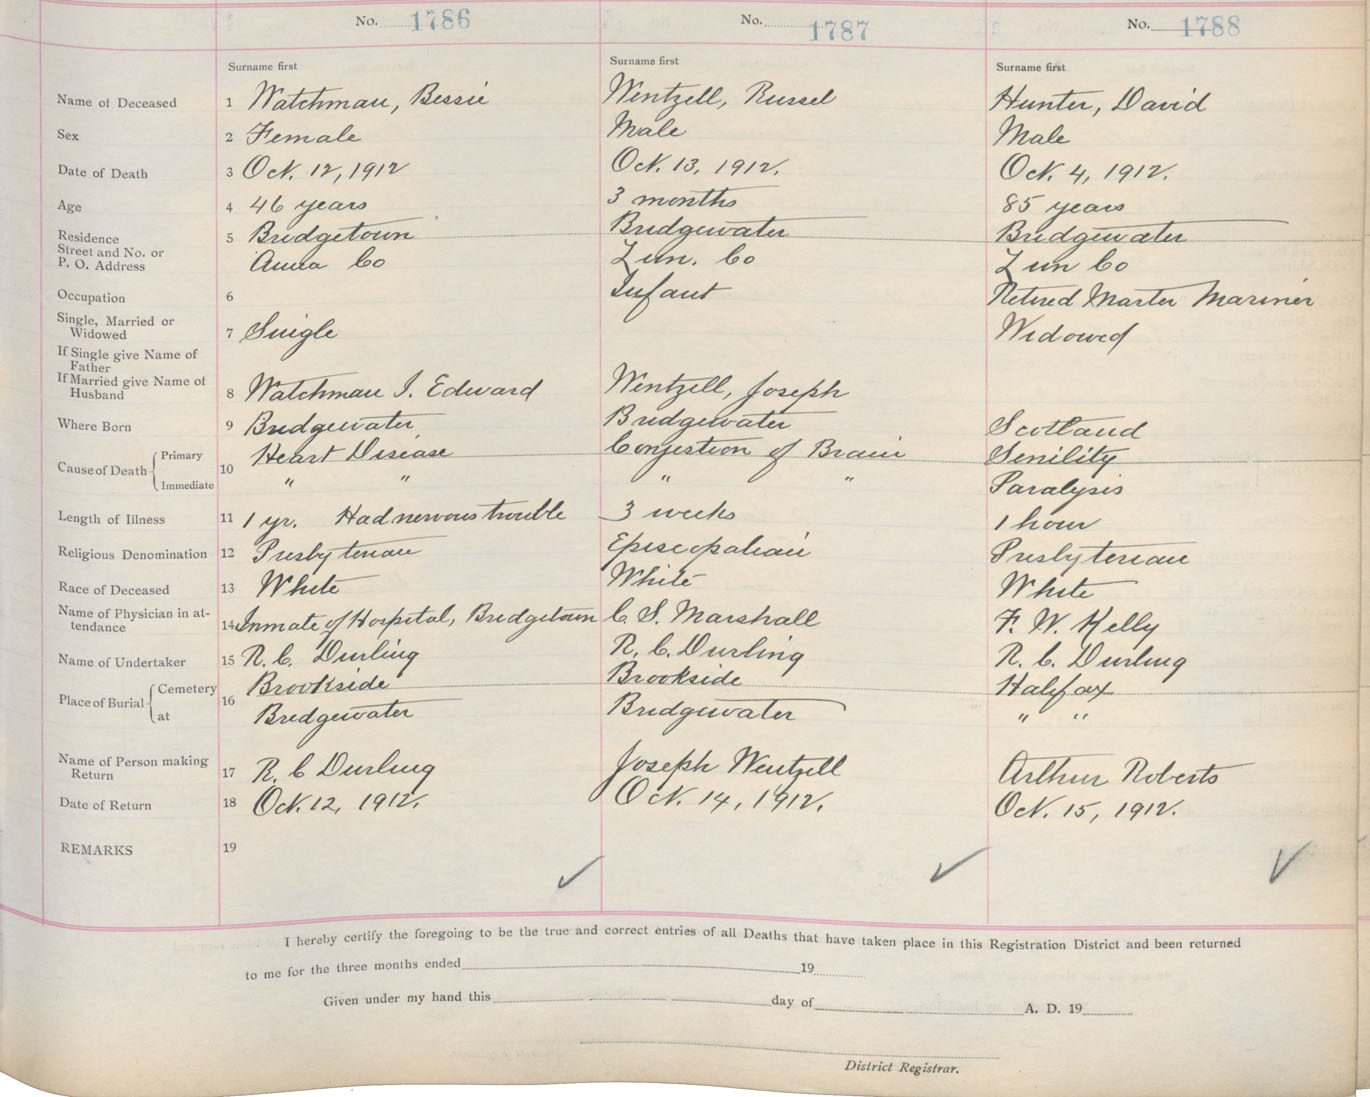 No. 1786 No. 1787 No. 1788
Surname first Surname first Surname first
Name of Deceased 1 Watchman, Bessie Wentzell, Russel Hunter, David
Sex 2 Female Male Male
Date of Death 3 Oct. 12, 1912 Oct. 13, 1912. Oct. 4, 1912.
Age 4 46 years 3 months 85 years
Residence 5 Bridgetown Bridgewater Bridgewater
Street and No. or
P. O. Address Anna Co Lun. Co Lun Co
Occupation 6 Infant Retired Master Mariner
Single, Married or
Widowed 7 Single Widowed
If Single give Name of
Father
If Married give Name of
Husband 8 Watchman J. Edward Wentzell, Joseph
Where Born 9 Bridgewater Bridgewater Scotland
Cause of Death Primary 10 Heart Disease Congestion of Brain Senility
Immediate " " " " Paralysis
Length of Illness 11 1 yr. Had nervous trouble 3 weeks 1 hour
Religious Denomination 12 Presbyterian Episcopalian Presbyterian
Race of Deceased 13 White White White
Name of Physician in at-
tendance 14 Inmate of Hospital, Bridgetown C. S. Marshall F. W. Kelly
Name of Undertaker 15 R. C. Durling R. C. Durling R. C. Durling
Place of Burial Cemetery 16 Brookside Brookside Halifax
at Bridgewater Bridgewater " "
Name of Person making
Return 17 R. C Durling Joseph Wentzell Arthur Roberts
Date of Return 18 Oct. 12, 1912. Oct. 14, 1912. Oct. 15, 1912.
REMARKS 19
I hereby certify the foregoing to be the true and correct entries of all Deaths that have taken place in this Registration District and been returned
to me for the three months ended 19
Given under my hand this day of A. D. 19
District Registrar.